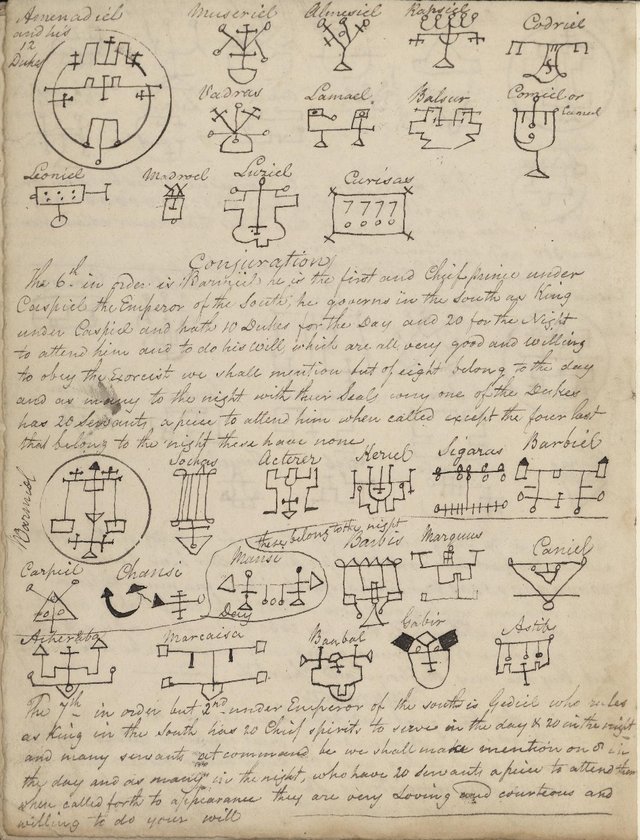 Amenadiel
and his
12
Dukes
Museriel
Almesiel
Rapsiel
Codriel
Vadras
Lamael
Balsur
Curziel or
Leoniel
Madroel
Luziel
Curisas
7777
Conjuration
The 6th in order is Barmiel he is the first and Chief prince under
Caspiel the Emperor of the South; he governs in the south as King
under Caspiel and hath 10 Dukes for the Day and 20 for the Night
to attend him and to do his will, which are all very good and willing
to obey the Exorcist we shall mention but of eight belong to the day
and as many to the night with their Seals every one of the Dukes
has 20 Servants, a piece to attend him when called except the four last
that belong to the night these have none
Barmiel
Sochas
Acterer
Keriel
Sigaras
Barbiel
these belong to the night
Carpiel
Chansi
Mansi
Day
Barbis
Marguns
Caniel
Acreba
Marcaisa
Baabal
Gabir
Astib
The 7th in order but 2nd under Emperor of the south is Gediel who rules
as King in the south has 20 Chief spirits to serve in the day & 20 in the night
and many servants at command be we shall make mention on 8 in
the day and as many in the night, who have 20 servants a piece to attend them
when called forth to appearance they are very Loving and courteous and
willing to do your will